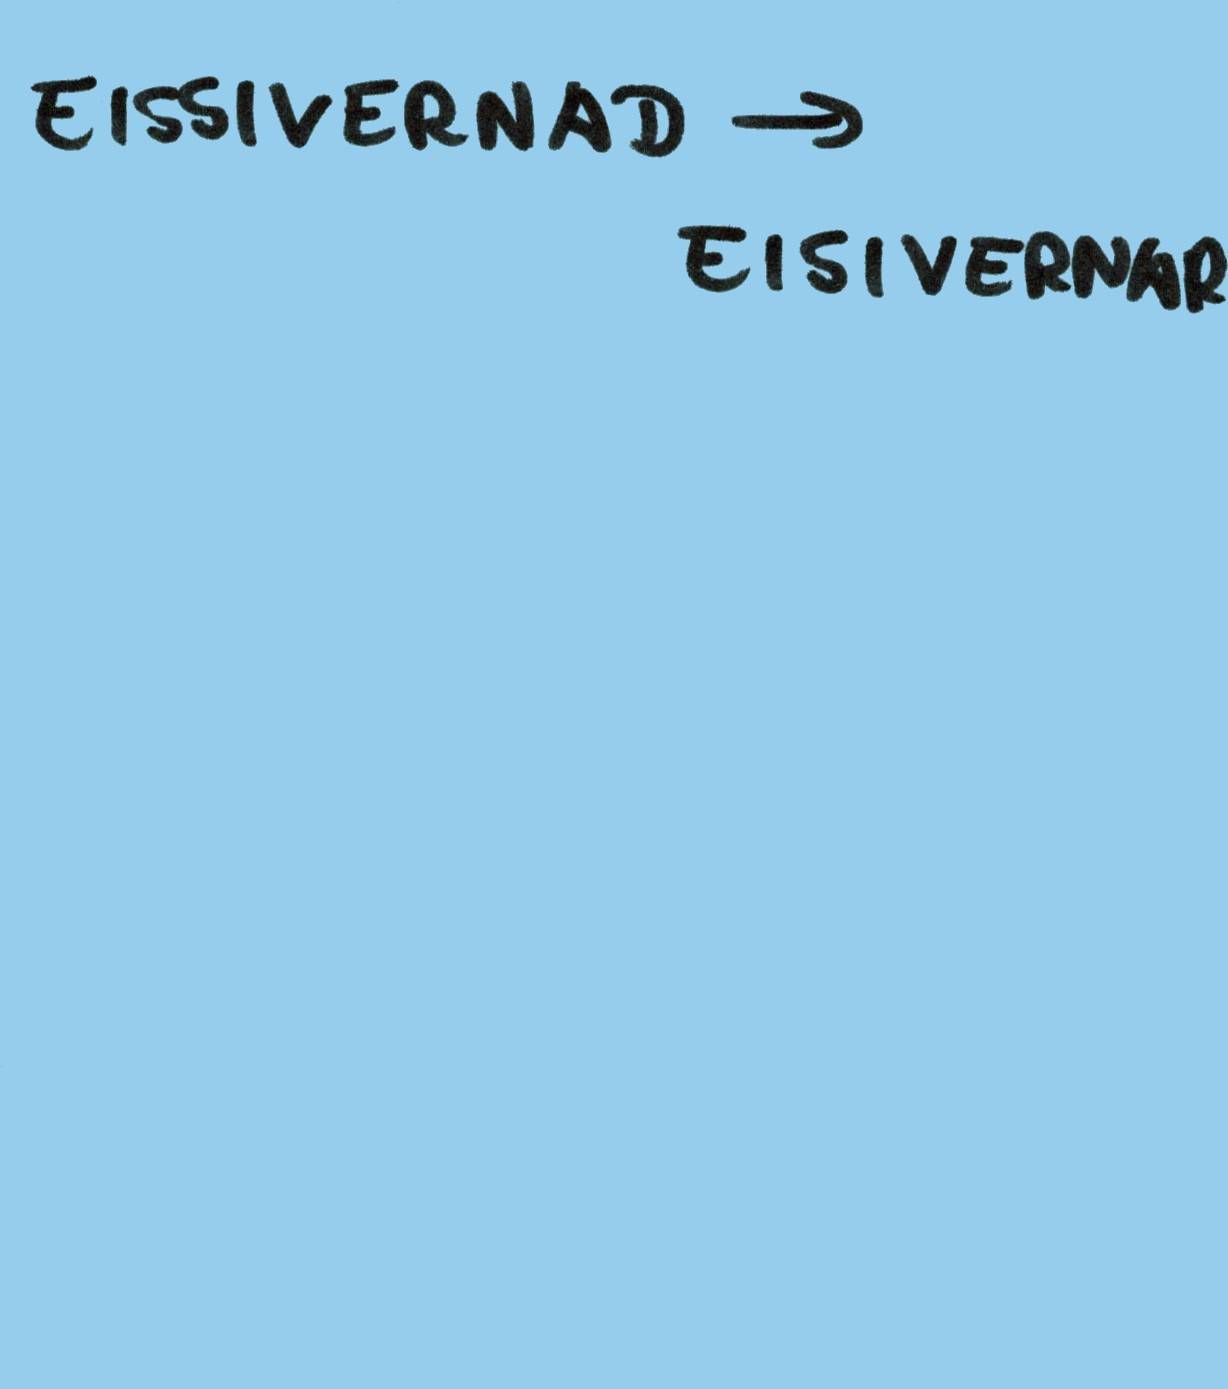 EISSIVERNAD →
EISIVERNAR